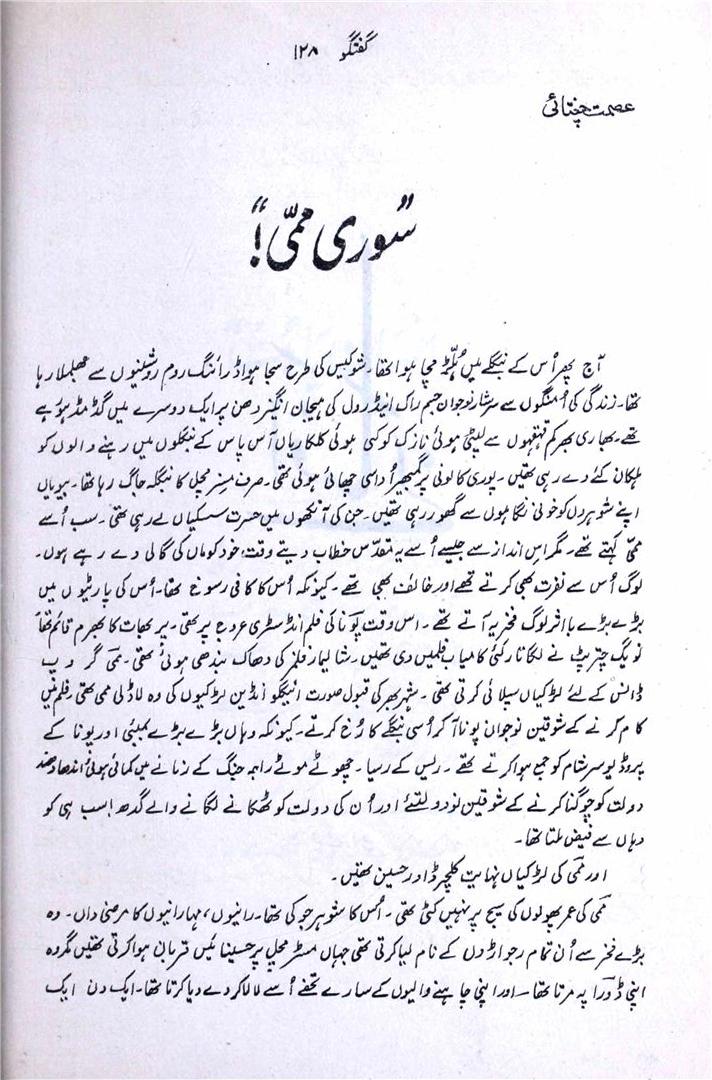 گفتگو ۱۲۸
عصمت چغتائی
"سوری ممّی!"
آج پھر اُس کے بنگلے میں ہُلّڑ مچا ہوا تھا۔ شوکیس کی طرح سجا ہوا ڈرائنگ روم روشنیوں سے جھلملا رہا
تھا۔ زندگی کی اُمنگوں سے سرشار نوجوان جسم راک اینڈ رول کی ہیجان انگیز دھن پر ایک دوسرے میں گڈمڈ ہو رہے
تھے۔ بھاری بھر کم قہقہوں سے لپٹی ہوئی نازک کوکتی ہوئی کلکاریاں آس پاس کے بنگلوں میں رہنے والوں کو
ہلکان کئے دے رہی تھیں۔ پوری کالونی پر گمبھیر اُداسی چھائی ہوئی تھی۔ صرف مسز مچل کا بنگلہ جاگ رہا تھا۔ بیویاں
اپنے شوہروں کو خونی نگاہوں سے گھور رہی تھیں۔ جن کی آنکھوں میں حسرت سسکیاں لے رہی تھی۔ سب اُسے
ممّی کہتے تھے۔ مگر اس انداز سے جیسے اُسے یہ مقدّس خطاب دیتے وقت خود کو ماں کی گالی دے رہے ہوں۔
لوگ اُس سے نفرت بھی کرتے تھے اور خائف بھی تھے۔ کیونکہ اُس کا کافی رسوخ تھا۔ اُس کی پارٹیوں میں
بڑے بڑے بااثر لوگ فخریہ آتے تھے۔ اس وقت پونا کی فلم انڈسٹری عروج پر تھی۔ پربھات کا بھرم قائم تھا
نویگ چترپٹ نے لگاتار کئی کامیاب فلمیں دی تھیں۔ شالیمار فلمز کی دھاک بندھی ہوئی تھی۔ ممّی گروپ
ڈانس کے لئے لڑکیاں سپلائی کرتی تھی۔ شہر بھر کی قبول صورت اینگلو انڈین لڑکیوں کی وہ لاڈلی ممی تھی۔ فلم میں
کام کرنے کے شوقین نوجوان پونا آ کر اُسی بنگلے کا رُخ کرتے۔ کیونکہ وہاں بڑے بڑے بمبئی اور پونا کے
پروڈیوسر شام کو جمع ہوا کرتے تھے۔ ریس کے رسیا۔ چھوٹے موٹے راجہ جنگ کے زمانے میں کمائی ہوئی اندھا دھند
دولت کو چوگنا کرنے کے شوقین نودولتئے اور اُن کی دولت کو ٹھکانے لگانے والے گدھ! سب ہی کو
وہاں سے فیض ملتا تھا۔
اور ممّی کی لڑکیاں نہایت کلچرڈ اور حسین تھیں۔
ممّی کی عمر پھولوں کی سیج پر نہیں کٹی تھی۔ اُس کا شوہر جوکی تھا۔ رانیوں، مہارانیوں کا مرضی داں۔ وہ
بڑے فخر سے اُن تمام رجواڑوں کے نام لیا کرتی تھی جہاں مسٹر مچل پر حسینائیں قربان ہوا کرتی تھیں مگر وہ
اپنی ڈورا پہ مرتا تھا۔ اور اپنی چاہنے والیوں کے سارے تحفے اُسے لا لا کر دے دیا کرتا تھا۔ ایک دن ایک